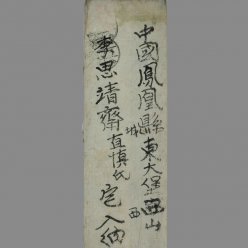 中國鳳凰縣東大堡西山
城
西
李思靖齋直慎氏宅入納